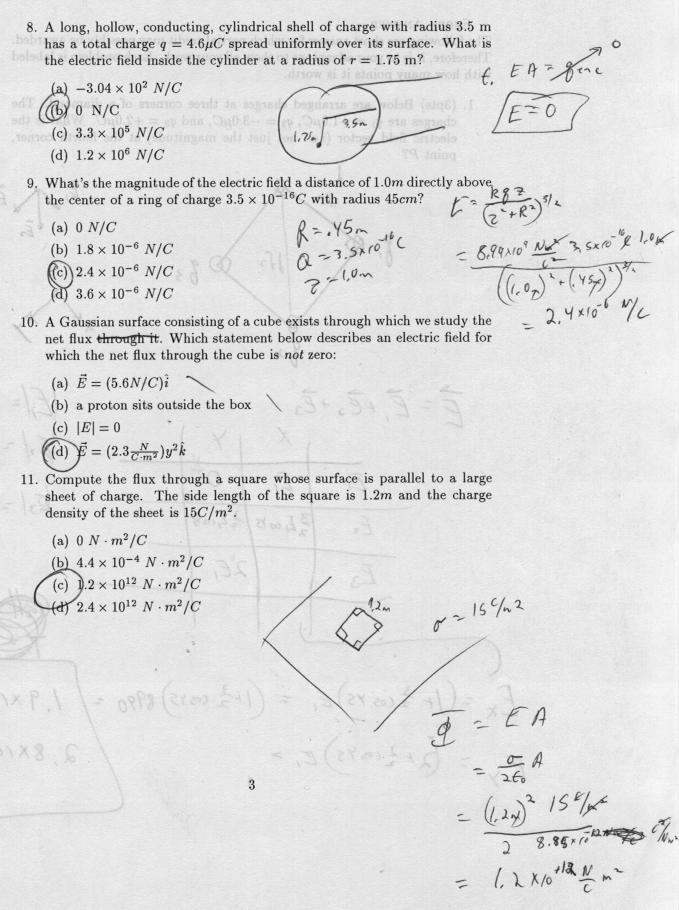 8. A long, hollow, conducting, cylindrical shell of charge with radius 3.5 m
has a total charge q = 4.6μC spread uniformly over its surface. What is
the electric field inside the cylinder at a radius of r = 1.75 m?
(a) −3.04 × 10² N/C
(b) 0 N/C
(c) 3.3 × 10⁵ N/C
(d) 1.2 × 10⁶ N/C
3.5m
1.75m
ε₀ EA = qenc 0
E=0
9. What's the magnitude of the electric field a distance of 1.0m directly above
the center of a ring of charge 3.5 × 10⁻¹⁶C with radius 45cm?
(a) 0 N/C
(b) 1.8 × 10⁻⁶ N/C
(c) 2.4 × 10⁻⁶ N/C
(d) 3.6 × 10⁻⁶ N/C
R = .45m
Q = 3.5×10⁻¹⁶C
z = 1.0m
E = kqz / (z²+R²)^3/2
= 8.99×10⁹ Nm²/C² 3.5×10⁻¹⁶C 1.0m / ((1.0m)² + (.45m)²)^3/2
= 2.4×10⁻⁶ N/C
10. A Gaussian surface consisting of a cube exists through which we study the
net flux through it. Which statement below describes an electric field for
which the net flux through the cube is not zero:
(a) E⃗ = (5.6N/C)î
(b) a proton sits outside the box
(c) |E| = 0
(d) E⃗ = (2.3 N/C·m²)y²k̂
11. Compute the flux through a square whose surface is parallel to a large
sheet of charge. The side length of the square is 1.2m and the charge
density of the sheet is 15C/m².
(a) 0 N · m²/C
(b) 4.4 × 10⁻⁴ N · m²/C
(c) 1.2 × 10¹² N · m²/C
(d) 2.4 × 10¹² N · m²/C
1.2m
σ = 15 C/m²
Φ = EA
= σ/2ε₀ A
= (1.2m)² 15 C/m² / 2 8.85×10⁻¹² C²/Nm²
= 1.2 ×10⁺¹² N/C m²
3